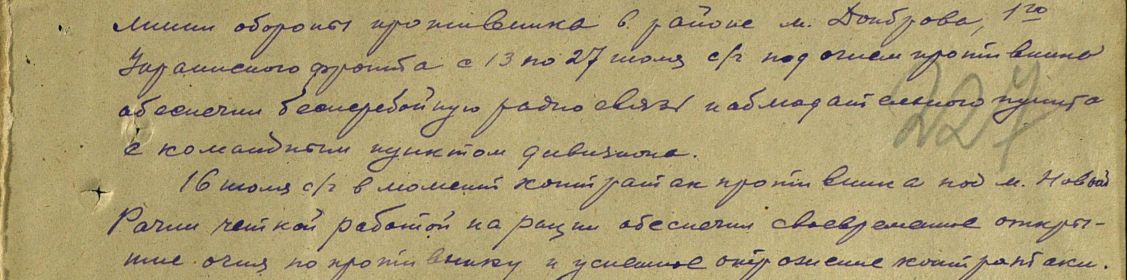 линии обороны противника в районе м. Домброва, 1го
Украинского фронта с 13 по 27 июля с/г под огнем противника
обеспечил бесперебойную радиосвязь наблюдательного пункта
с командным пунктом дивизиона.
16 июля с/г в момент контратак противника под м. Новой
Рачин четкой работой на рации обеспечил своевременное откры-
тие огня по противнику и успешное отражение контратаки.
227